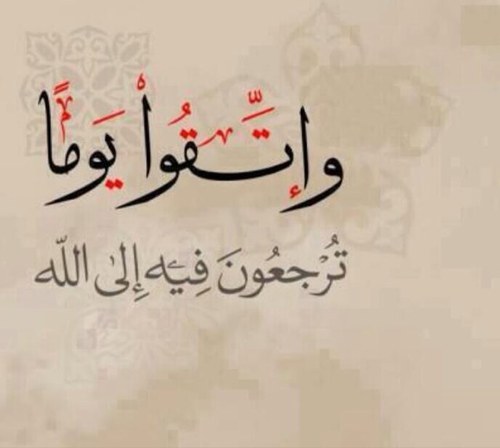 وإتَّقُواْ يَومًا
تُرْجعُونَ فِيْهِ إِلىٰ اللّه